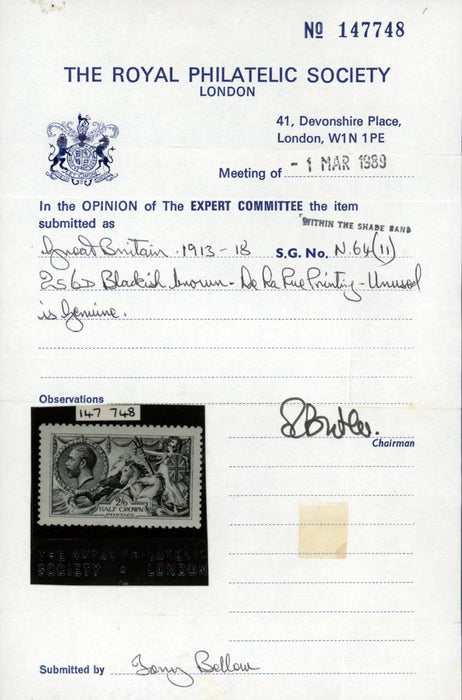 Nº 147748
THE ROYAL PHILATELIC SOCIETY
LONDON
41, Devonshire Place,
London, W1N 1PE
Meeting of - 1 MAR 1989
In the OPINION of The EXPERT COMMITTEE the item
submitted as
WITHIN THE SHADE BAND
Great Britain . 1913 - 18 S.G. No. N.64(11)
2s6D Blackish brown - De La Rue Printing - Unused
is Genuine.
Observations
147 748
2/6
HALF CROWN
POSTAGE
THE ROYAL PHILATELIC
SOCIETY LONDON
Chairman
Submitted by Tony Bellew